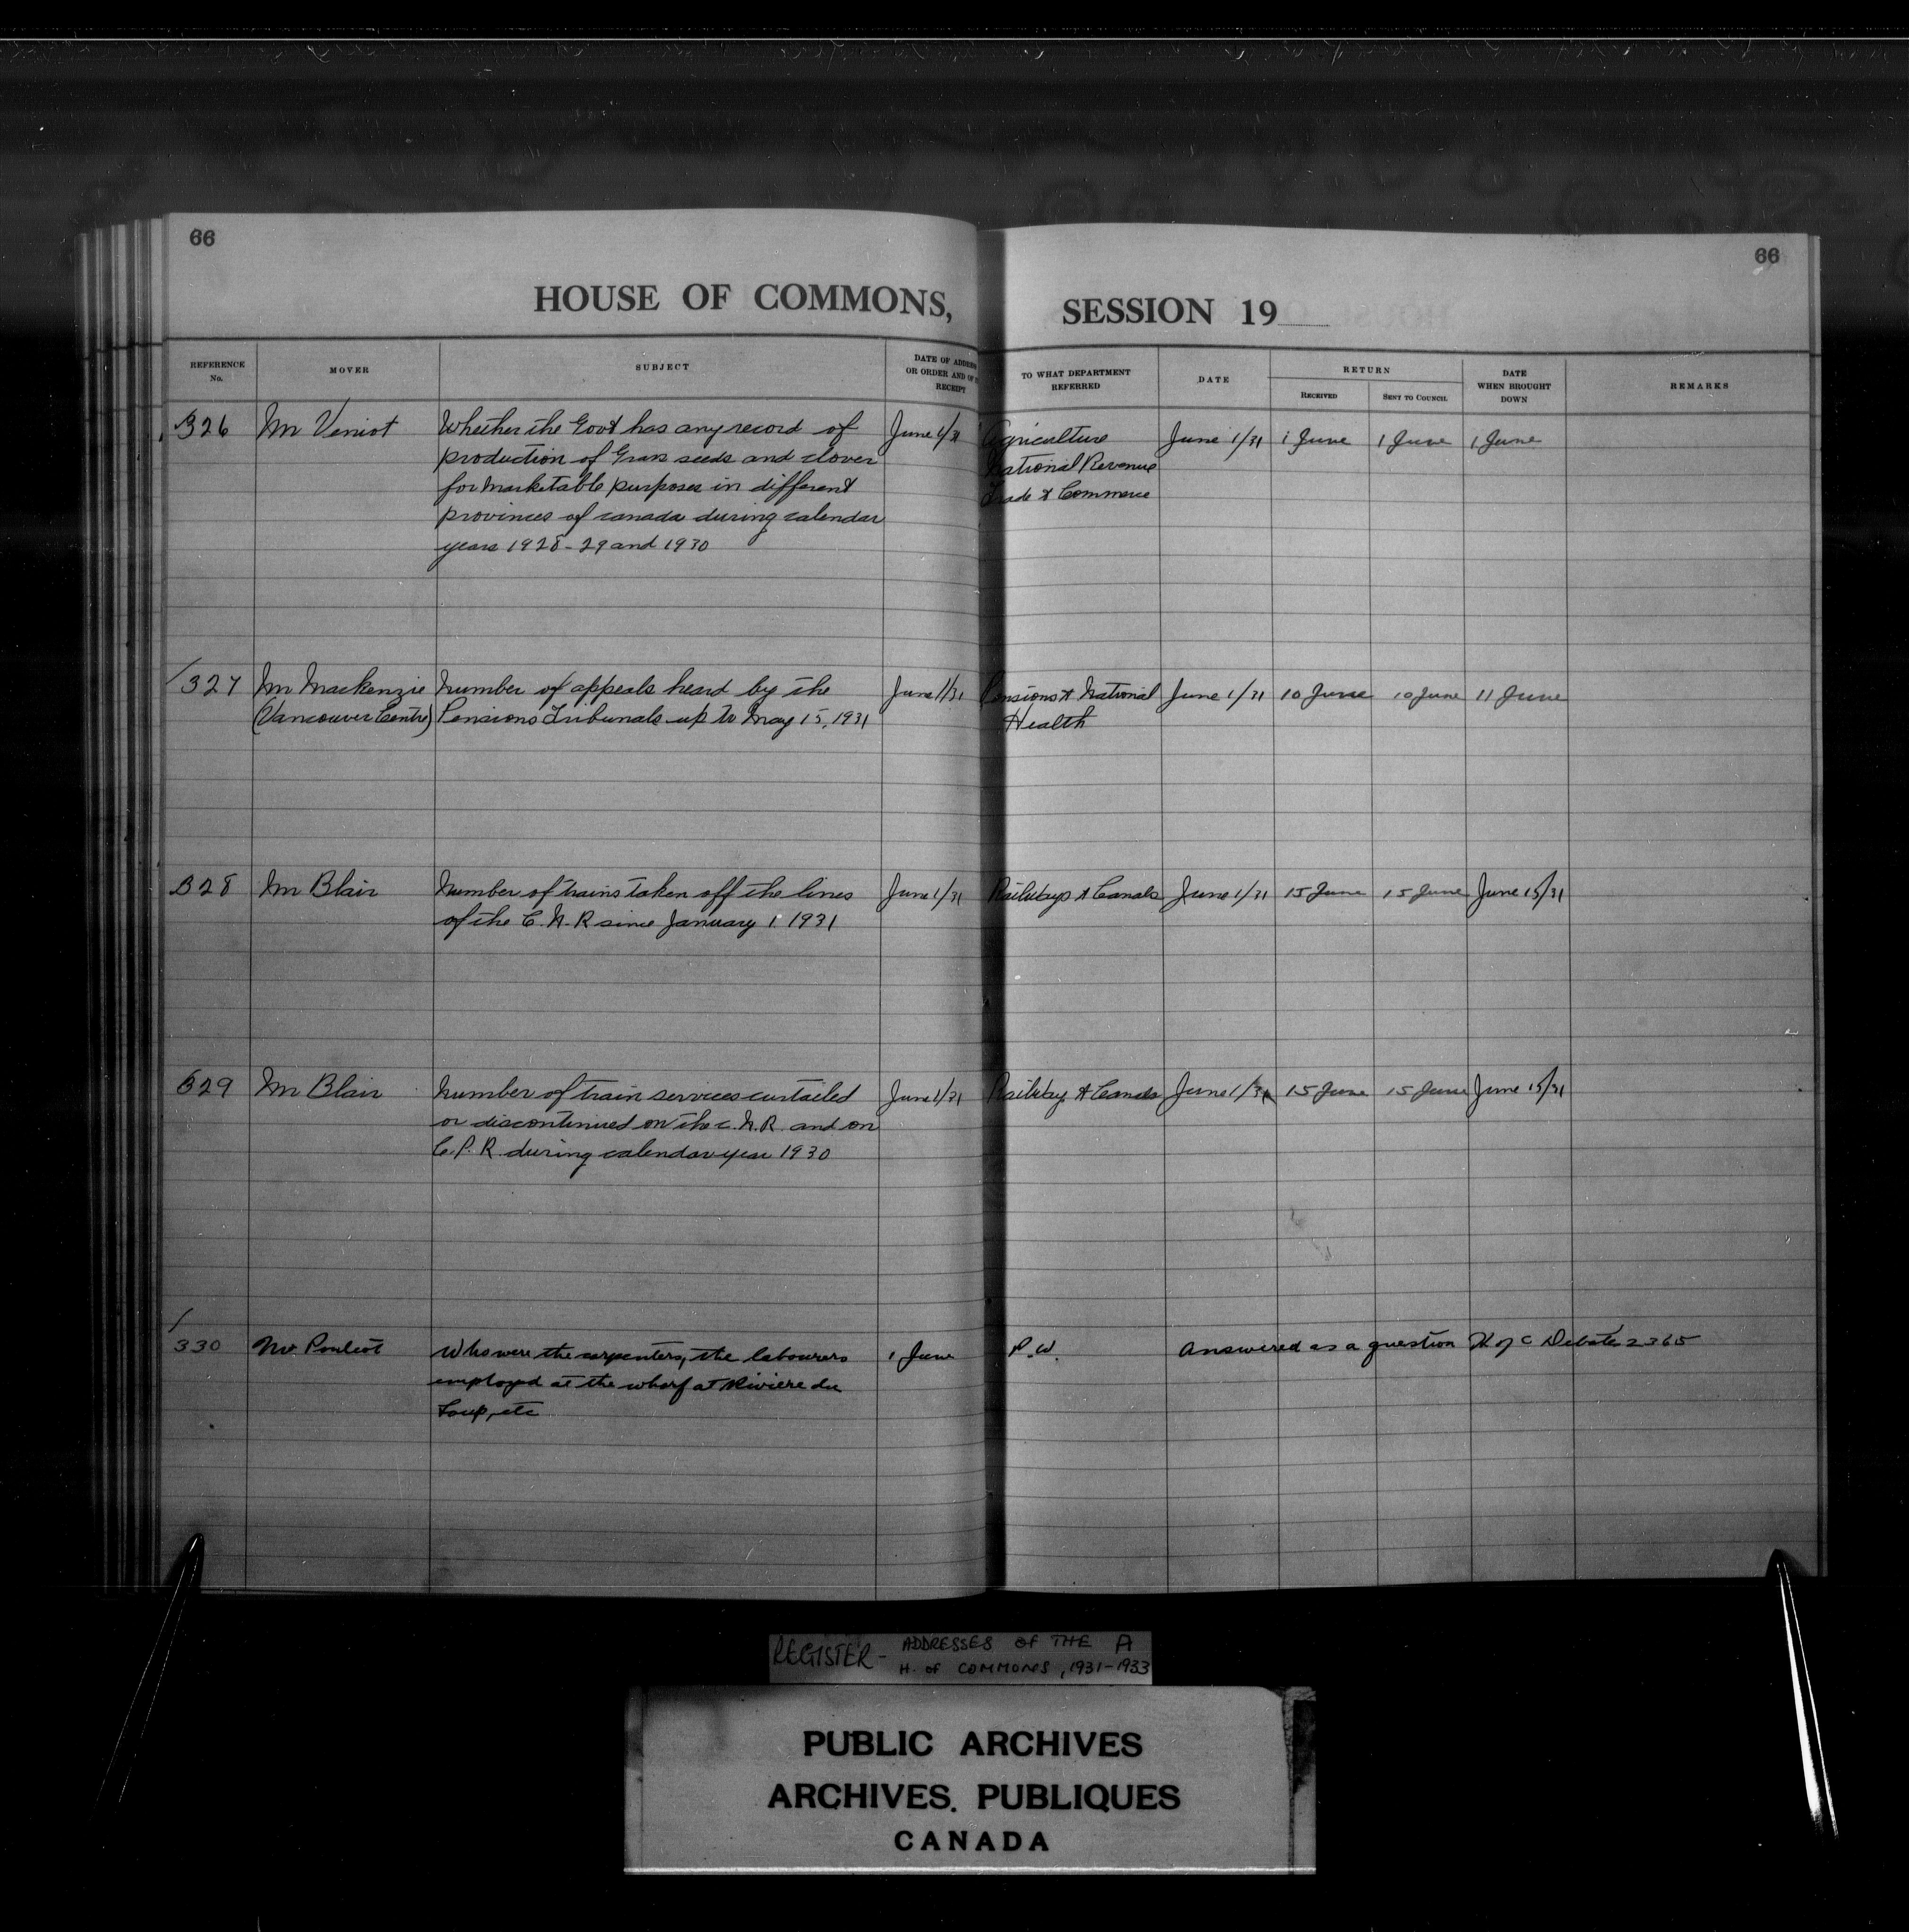 66
66
HOUSE OF COMMONS, SESSION 19
REFERENCE No.
MOVER
SUBJECT
DATE OF ADDRESS OR ORDER AND OF RECEIPT
TO WHAT DEPARTMENT REFERRED
DATE
RETURN
RECEIVED
SENT TO COUNCIL
DATE WHEN BROUGHT DOWN
REMARKS
326 Mr Veniot Whether the Govt has any record of June 1/31 Agriculture June 1/31 1 June 1 June 1 June
production of Grass seeds and clover National Revenue
for marketable purposes in different Trade & Commerce
provinces of canada during calendar
years 1928-29 and 1930
327 Mr Mackenzie Number of appeals heard by the June 1/31 Pensions & National June 1/31 10 June 10 June 11 June
(Vancouver Centre) Pensions Tribunals up to May 15, 1931 Health
328 Mr Blair Number of trains taken off the lines June 1/31 Railways & Canals June 1/31 15 June 15 June June 15/31
of the C.N.R since January 1 1931
329 Mr Blair Number of train services curtailed June 1/31 Railway & Canals June 1/31 15 June 15 June June 15/31
or discontinued on the C.N.R. and on
C.P.R. during calendar year 1930
330 Mr. Pouliot Who were the carpenters, the labourers 1 June P.W. Answered as a question H of C Debates 2365
employed at the wharf at Riviere du
Loup, etc
REGISTER - ADDRESSES OF THE A
H. of COMMONS, 1931-1933
PUBLIC ARCHIVES
ARCHIVES. PUBLIQUES
CANADA